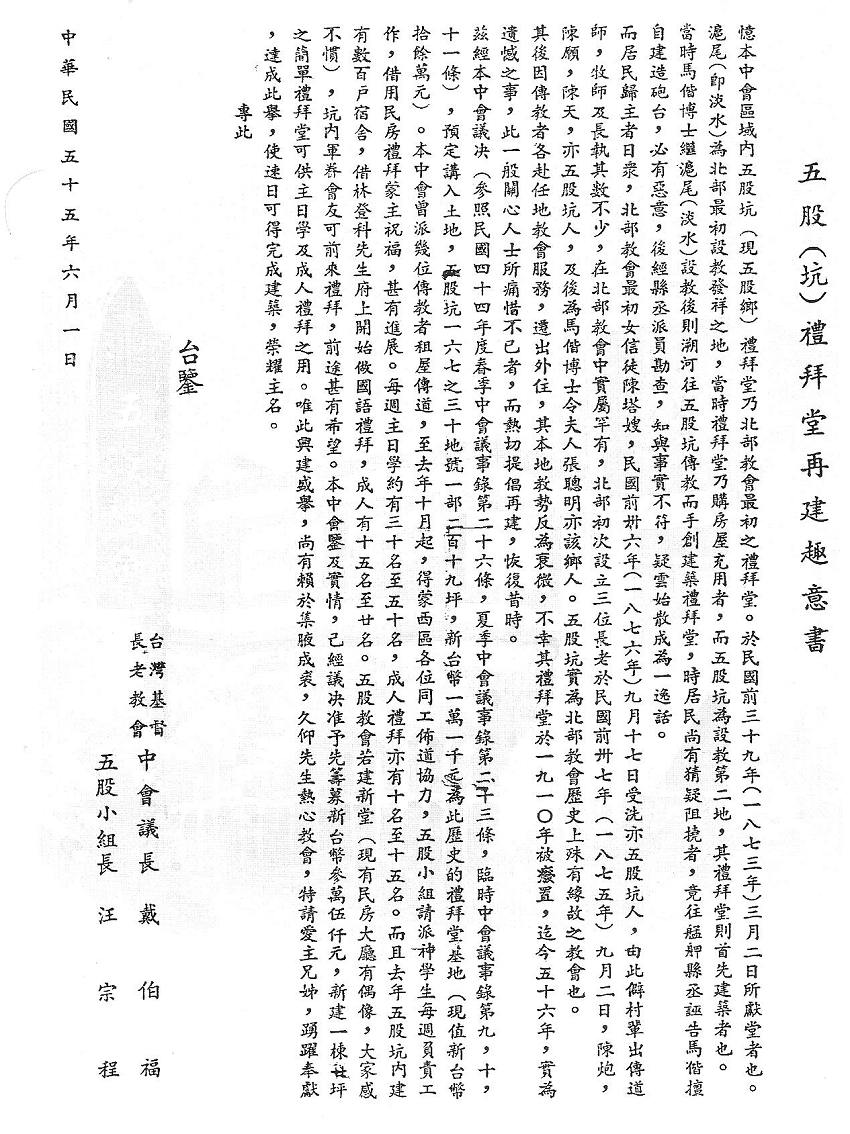 五股(坑)禮拜堂再建趣意書
憶本中會區域內五股坑（現五股鄉）禮拜堂乃北部教會最初之禮拜堂。於民國前三十九年(一八七三年)三月二日所獻堂者也。
滬尾(即淡水)為北部最初設教發祥之地，當時禮拜堂乃購房屋充用者，而五股坑為設教第二地，其禮拜堂則首先建築者也。
當時馬偕博士繼滬尾(淡水)設教後則溯河往五股坑傳教而手創建築禮拜堂，時居民尚有猜疑阻撓者，竟往艋舺縣丞誣告馬偕擅
自建造砲台，必有惡意，後經縣丞派員勘查，知與事實不符，疑雲始散成為一逸話。
而居民歸主者日衆，北部教會最初女信徒陳塔嫂，民國前卅六年(一八七六年)九月十七日受洗亦五股坑人，由此僻村輩出傳道
師，牧師及長執其數不少，在北部教會中實屬罕有，北部初次設立三位長老於民國前卅七年（一八七五年）九月二日，陳炮，
陳願，陳天，亦五股坑人，及後為馬偕博士令夫人張聰明亦該鄉人。五股坑實為北部教會歷史上殊有緣故之教會也。
其後因傳教者各赴任地教會服務，遷出外住，其本地教勢反為衰微，不幸其禮拜堂於一九一〇年被廢置，迄今五十六年，實為
遺憾之事，此一般關心人士所痛惜不已者，而熱切提倡再建，恢復昔時。
茲經本中會議決（參照民國四十四年度春季中會議事錄第二十六條，夏季中會議事錄第二十三條，臨時中會議事錄第九，十，
十一條），預定講入土地，五股坑一六七之三十地號一部二百十九坪，新台幣一萬一千元為此歷史的禮拜堂基地（現值新台幣
拾餘萬元）。本中會曾派幾位傳教者租屋傳道，至去年十月起，得蒙西區各位同工佈道協力，五股小組請派神學生每週負責工
作，借用民房禮拜蒙主祝福，甚有進展。每週主日學約有三十名至五十名，成人禮拜亦有十名至十五名。而且去年五股坑內建
有數百戶宿舍，借林登科先生府上開始做國語禮拜，成人有十五名至廿名。五股教會若建新堂（現有民房大廳有偶像，大家感
不慣），坑內軍眷會友可前來禮拜，前途甚有希望。本中會鑒及實情，已經議決准予先籌募新台幣參萬伍仟元，新建一棟坪
之簡單禮拜堂可供主日學及成人禮拜之用。唯此興建盛舉，尚有賴於集腋成裘，久仰先生熱心教會，特請愛主兄姊，踴躍奉獻
，達成此舉，使速日可得完成建築，榮耀主名。
專此
台鑒
台灣基督長老教會 中會議長 戴伯福
五股小組長 汪宗程
中華民國五十五年六月一日